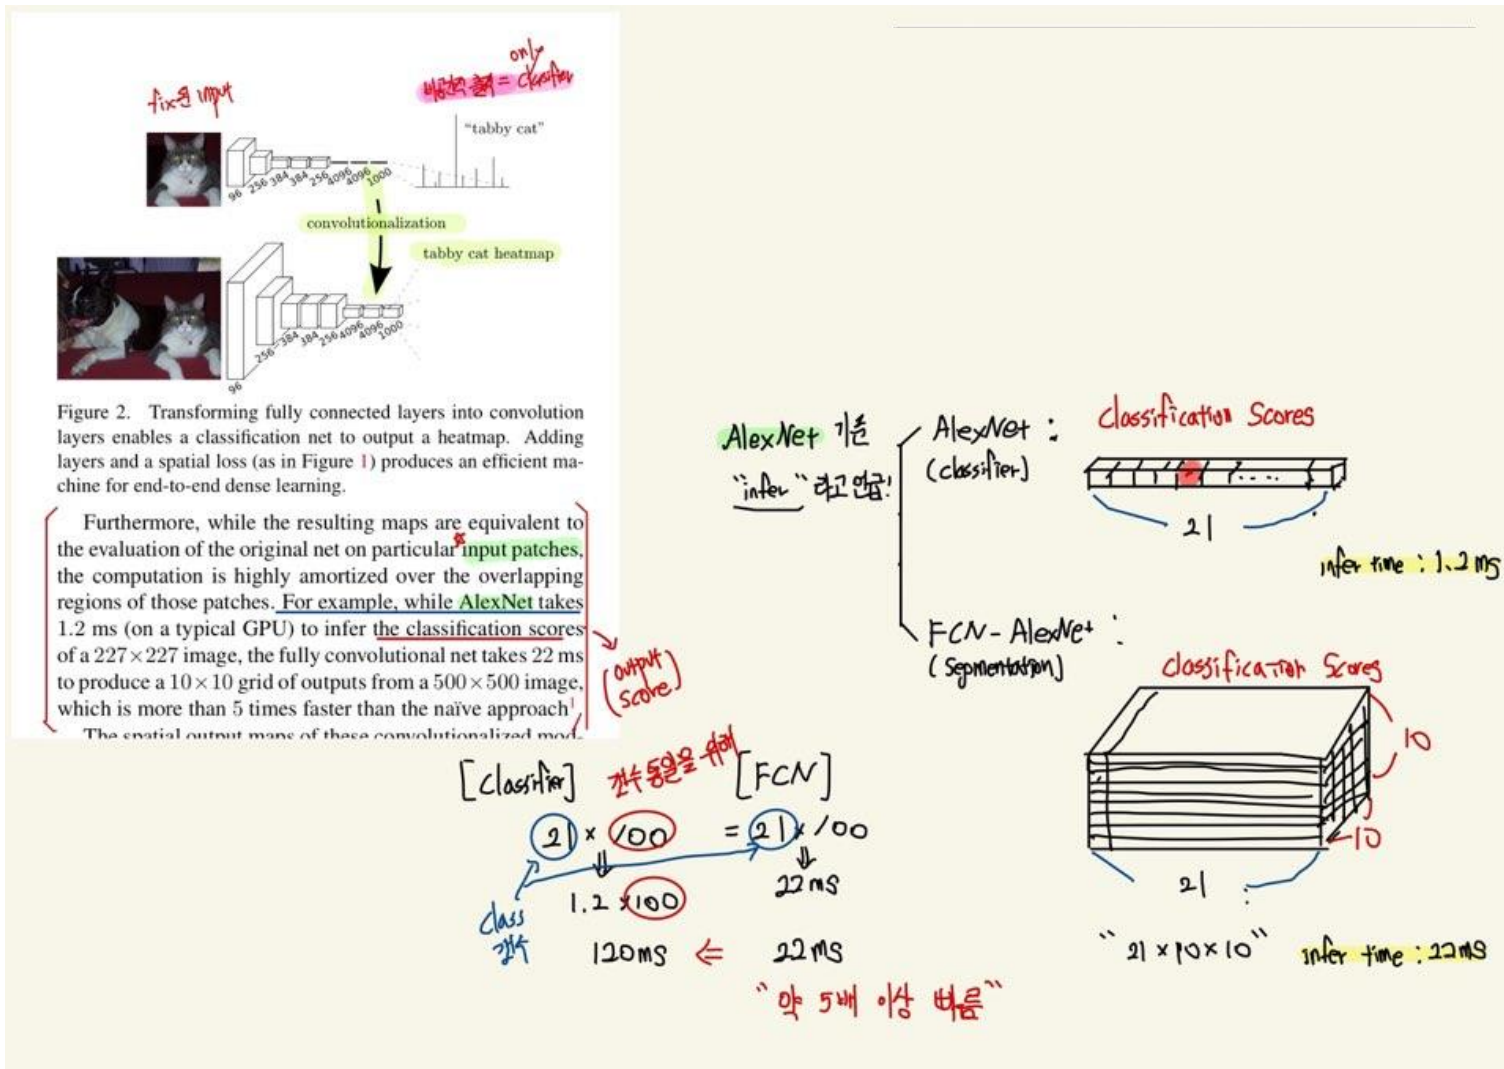 fix된 input
비공간적 출력 = only classifier
"tabby cat"
96 256 384 384 256 4096 4096 1000
convolutionalization
tabby cat heatmap
96 256 384 384 256 4096 4096 1000
Figure 2. Transforming fully connected layers into convolution
layers enables a classification net to output a heatmap. Adding
layers and a spatial loss (as in Figure 1) produces an efficient ma-
chine for end-to-end dense learning.
Furthermore, while the resulting maps are equivalent to
the evaluation of the original net on particular input patches,
the computation is highly amortized over the overlapping
regions of those patches. For example, while AlexNet takes
1.2 ms (on a typical GPU) to infer the classification scores
of a 227×227 image, the fully convolutional net takes 22 ms
to produce a 10×10 grid of outputs from a 500×500 image,
which is more than 5 times faster than the naïve approach1
The spatial output maps of these convolutionalized mod-
(output
score)
AlexNet 기준
"infer"라고 언급!
AlexNet :
(classifier)
Classification Scores
....
21
infer time : 1.2 ms
FCN - AlexNet :
(Segmentation)
Classification Scores
10
10
21
"21 × 10 × 10"
infer time : 22ms
[Classifier] 갯수 통일을 위해 [FCN]
21 × 100 = 21 × 100
1.2 × 100
22 ms
class
갯수
120ms ⇐ 22ms
"약 5배 이상 빠름"